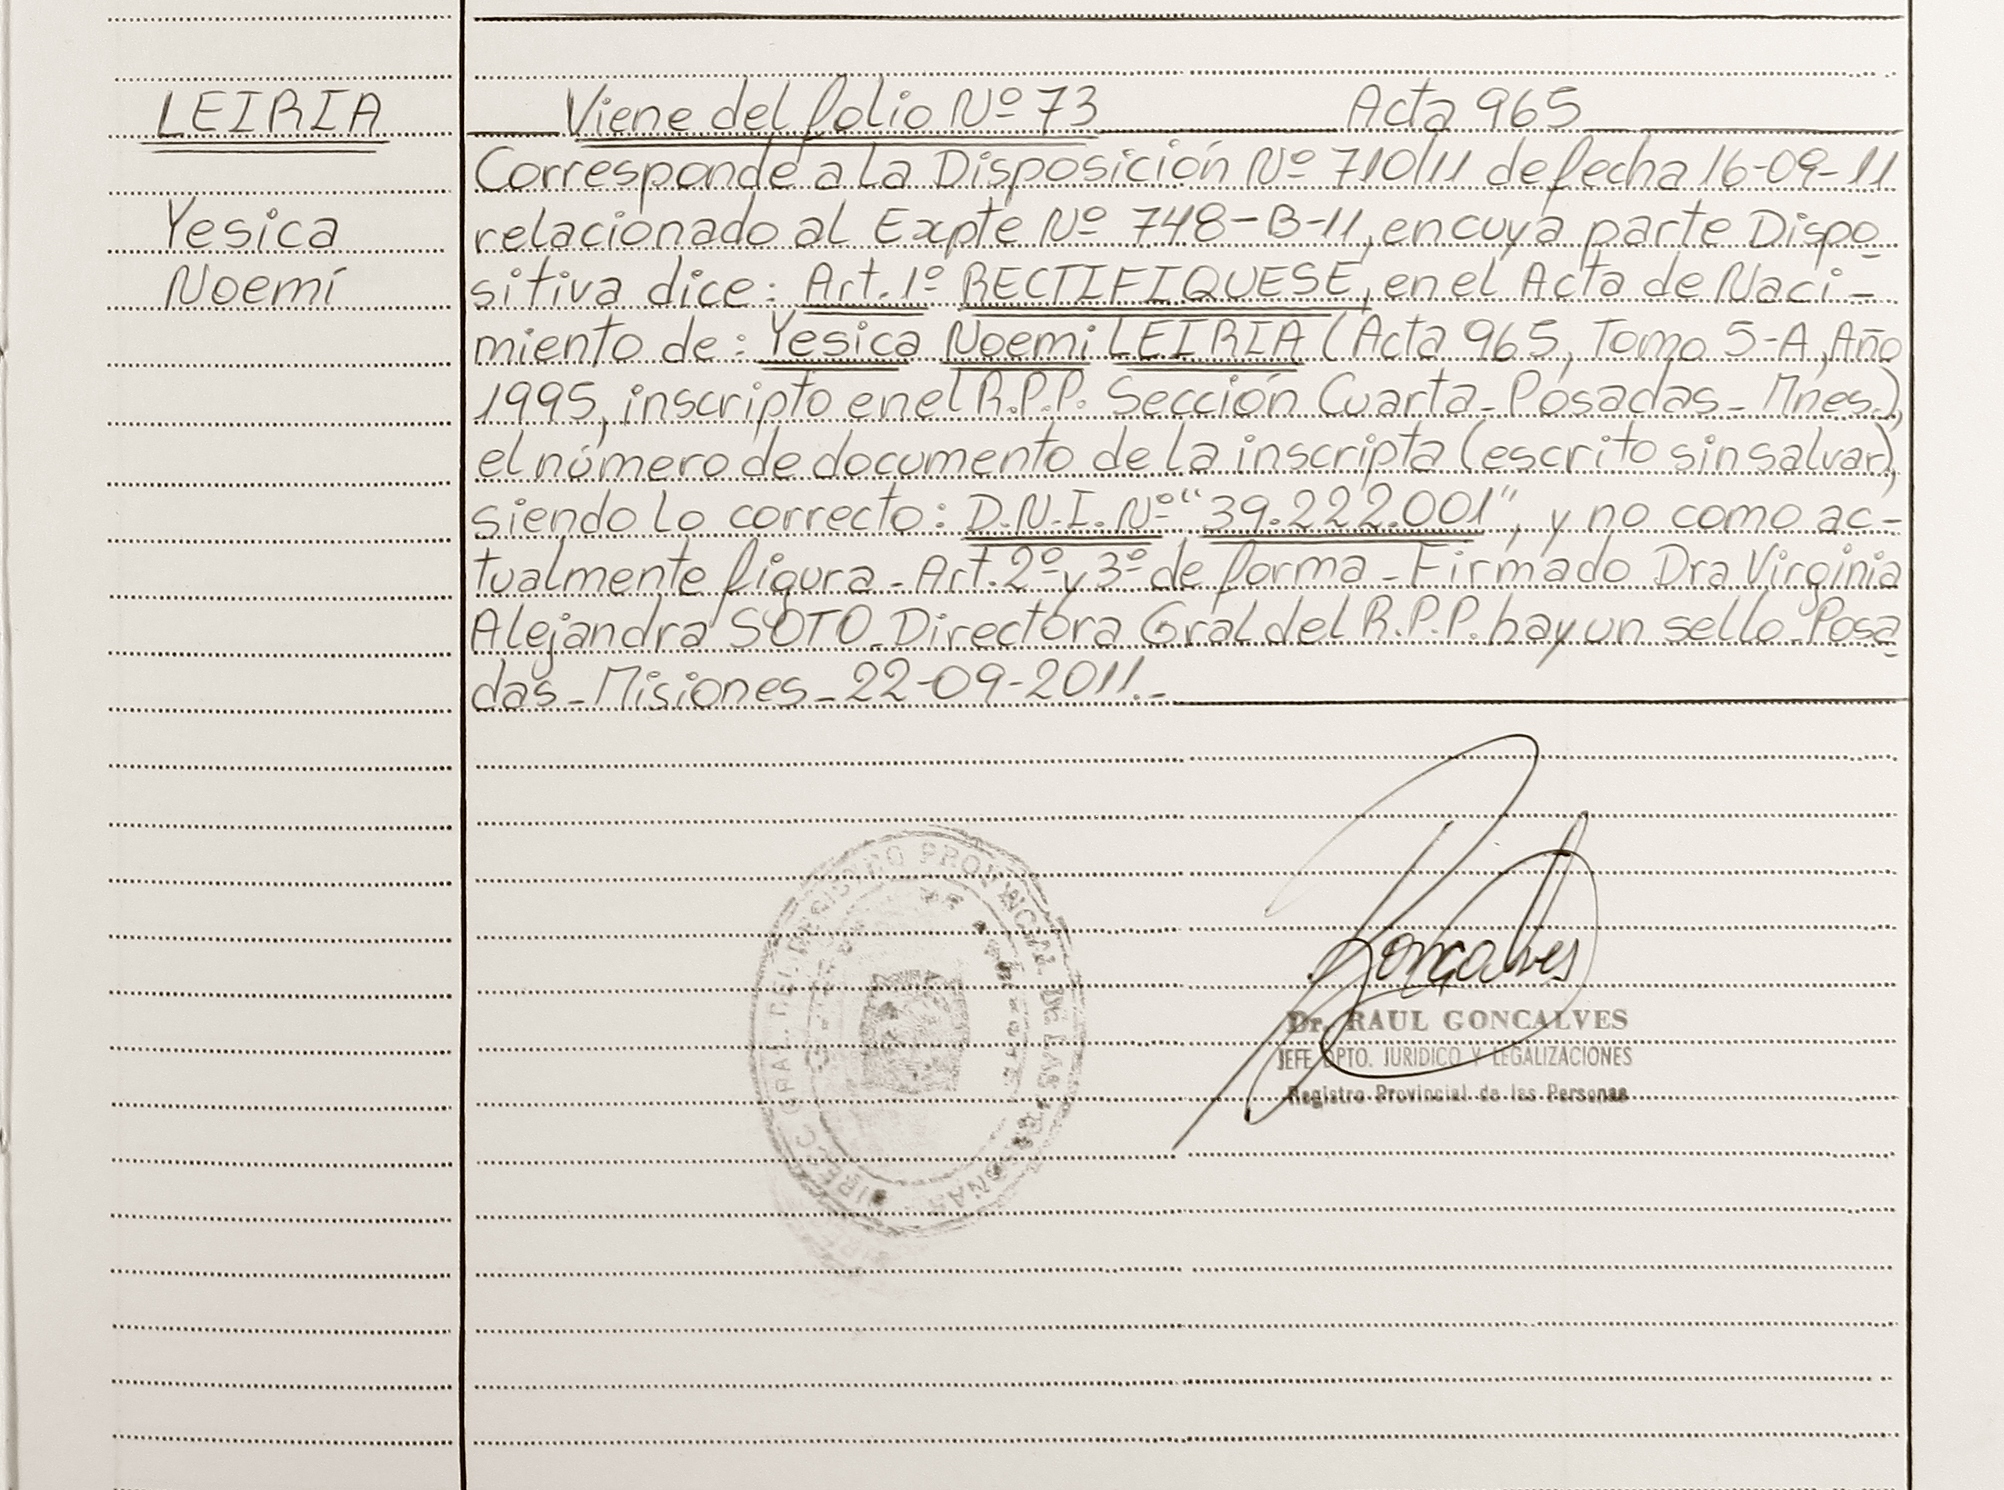 LEIRIA
Yesica
Noemí
Viene del folio Nº 73 Acta 965
Corresponde a la Disposición Nº 710/11 de fecha 16-09-11
relacionado al Expte Nº 748-B-11, en cuya parte Dispo
sitiva dice: Art. 1º RECTIFIQUESE, en el Acta de Naci-
miento de: Yesica Noemi LEIRIA (Acta 965, Tomo 5-A, Año
1995, inscripto en el R.P.P. Sección Cuarta_Posadas_Mnes.),
el número de documento de la inscripta (escrito sin salvar),
siendo lo correcto: D.N.I. Nº "39.222.001", y no como ac-
tualmente figura_Art. 2º y 3º de forma_Firmado Dra Virginia
Alejandra SOTO_Directora Gral del R.P.P. hay un sello_Posa
das_Misiones_22-09-2011._
DIREC. GRAL. DEL REGISTRO PROVINCIAL DE LAS PERSONAS
Goncalves
Dr. RAUL GONCALVES
JEFE DPTO. JURIDICO Y LEGALIZACIONES
Registro Provincial de las Personas